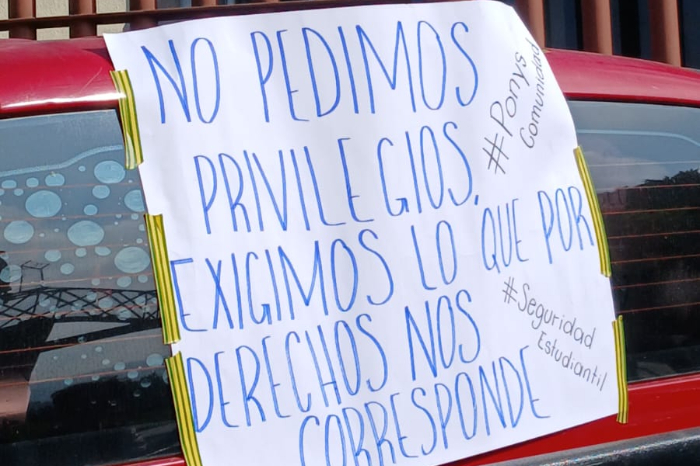 NO PEDIMOS
PRIVILEGIOS,
EXIGIMOS LO QUE POR
DERECHOS NOS
CORRESPONDE
#Ponys
Comunidad
#Seguridad
Estudiantil